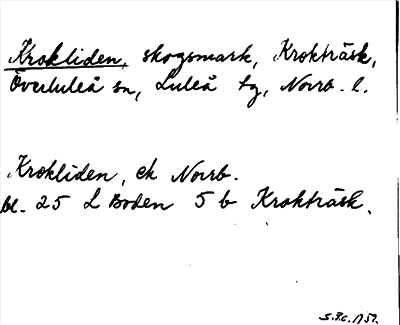 Krokliden, skogsmark, Krokträsk,
Överluleå sn, Luleå tg, Norrb. l.
Krokliden, ek Norrb.
bl. 25 L Boden 5 b Krokträsk.